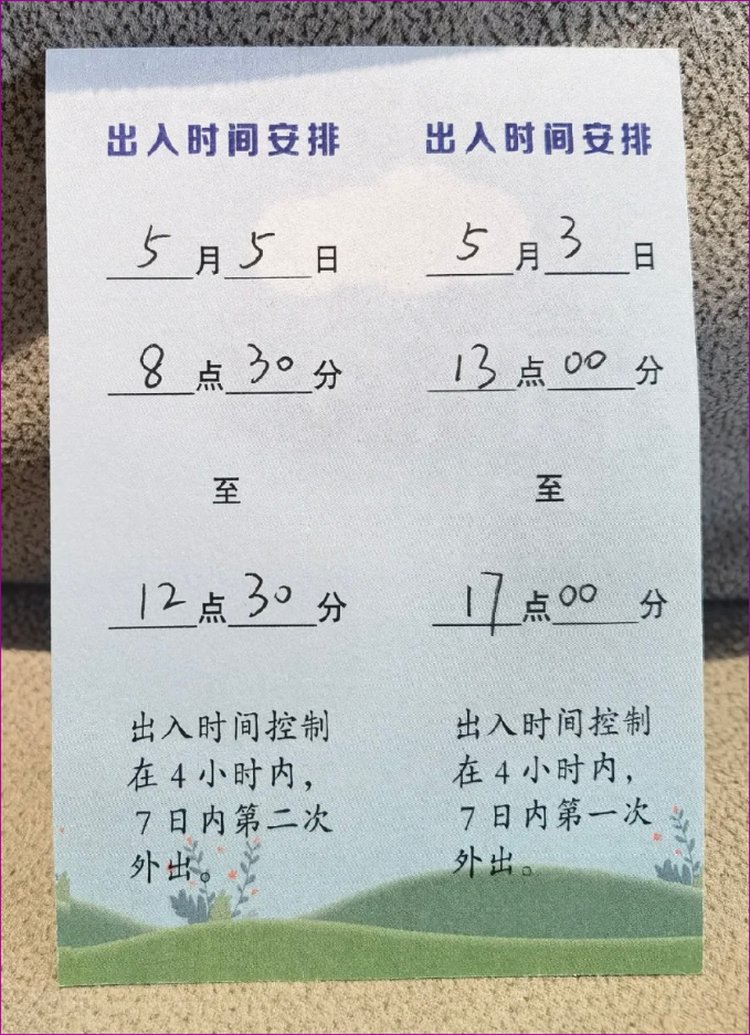 出入时间安排
5月5日
8点30分
至
12点30分
出入时间控制
在4小时内，
7日内第二次
外出。
出入时间安排
5月3日
13点00分
至
17点00分
出入时间控制
在4小时内，
7日内第一次
外出。